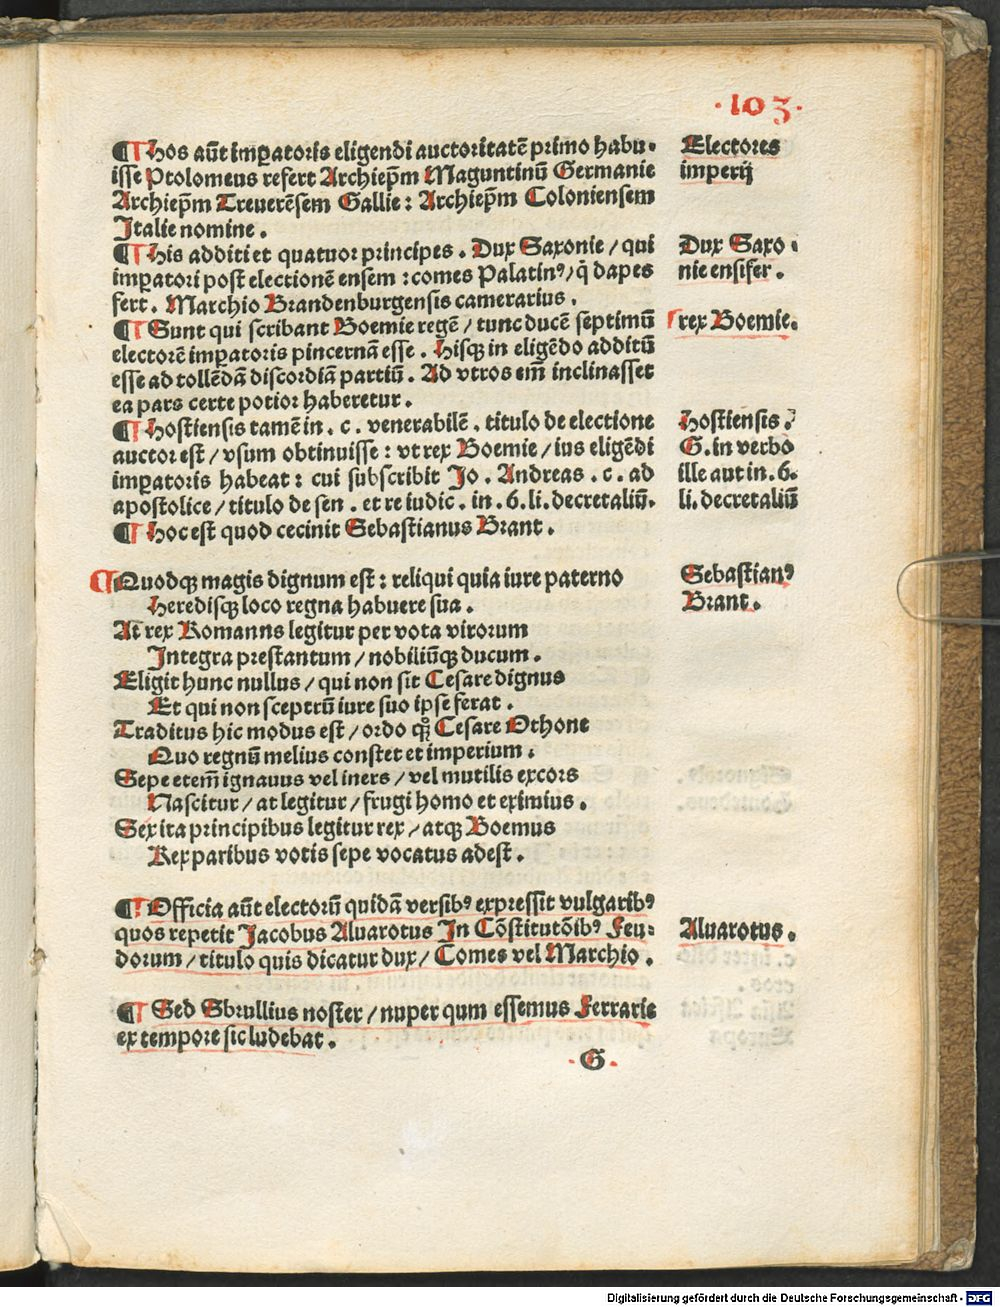 ·103·
¶ Hos aūt imꝑatoris eligendi auctoritatē primo habu·
isse Ptolomeus refert Archiep̄m Maguntinū Germanie
Archiep̄m Treuerēsem Gallie: Archiep̄m Coloniensem
Italie nomine.
Electores
imperij
¶ His additi et quatuor principes. Dux Saxonie / qui
imꝑatori post electionē ensem: comes Palatinꝰ / q̄ dapes
fert. Marchio Brandenburgensis camerarius.
Dux Saxo·
nie ensifer.
¶ Sunt qui scribant Boemie regē / tunc ducē septimū
electorē imꝑatoris pincernā esse. Hisqꝫ in eligēdo additū
esse ad tollēdā discordiā partiū. Ad vtros em̄ inclinasset
ea pars certe potior haberetur.
rex Boemie.
¶ Hostiensis tamē in. c. venerabilē. titulo de electione
auctor est / vsum obtinuisse: vt rex Boemie / ius eligēdi
imꝑatoris habeat: cui subscribit Jo. Andreas. c. ad
apostolice / titulo de sen. et re iudic. in. 6. li. decretaliū.
¶ Hoc est quod cecinit Sebastianus Brant.
Hostiensis.
G. in verbo
ille aut in. 6.
li. decretaliū
¶ Quodqꝫ magis dignum est: reliqui quia iure paterno
Heredisqꝫ loco regna habuere sua.
At rex Romanns legitur per vota virorum
Integra prestantum / nobiliūqꝫ ducum.
Eligit hunc nullus / qui non sit Cesare dignus
Et qui non sceptrū iure suo ipse ferat.
Traditus hic modus est / ordo qꝫ Cesare Othone
Quo regnū melius constet et imperium.
Sepe etem̄ ignauus vel iners / vel mutilis excors
Nascitur / at legitur / frugi homo et eximius.
Sex ita principibus legitur rex / atqꝫ Boemus
Rex paribus votis sepe vocatus adest.
Sebastianꝰ
Brant.
¶ Officia aūt electorū quidā versibꝰ expressit vulgaribꝰ
quos repetit Jacobus Aluarotus In Cōstitutōibꝰ Feu:
dorum / titulo quis dicatur dux / Comes vel Marchio.
Aluarotus.
¶ Sed Sbrullius noster / nuper qum essemus Ferrarie
ex tempore sic ludebat.
·G·
Digitalisierung gefördert durch die Deutsche Forschungsgemeinschaft - DFG